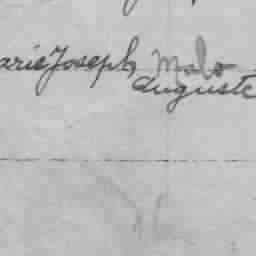 arie Joseph Malo
Auguste